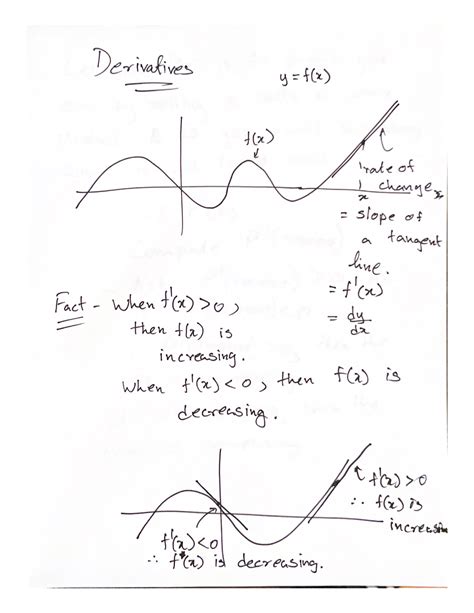 Derivatives
y = f(x)
f(x)
rate of
change
x
x
= slope of
a tangent
line.
= f'(x)
= dy/dx
Fact - When f'(x) > 0,
then f(x) is
increasing.
When f'(x) < 0, then f(x) is
decreasing.
f'(x) > 0
∴ f(x) is
increasin
f'(x) < 0
∴ f'(x) is decreasing.